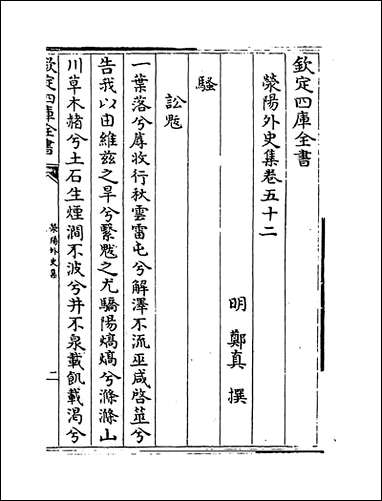 欽定四庫全書
滎陽外史集卷五十二
明 鄭真 撰
騷
訟魃
一葉落兮蓐收行秋雲雷屯兮解澤不流巫咸啓莁兮
告我以由維兹之旱兮繄魃之尤驕陽熇熇兮滌滌山
川草木赭兮土石生煙澗不波兮井不泉載飢載渴兮
欽定四庫全書
滎陽外史集
二